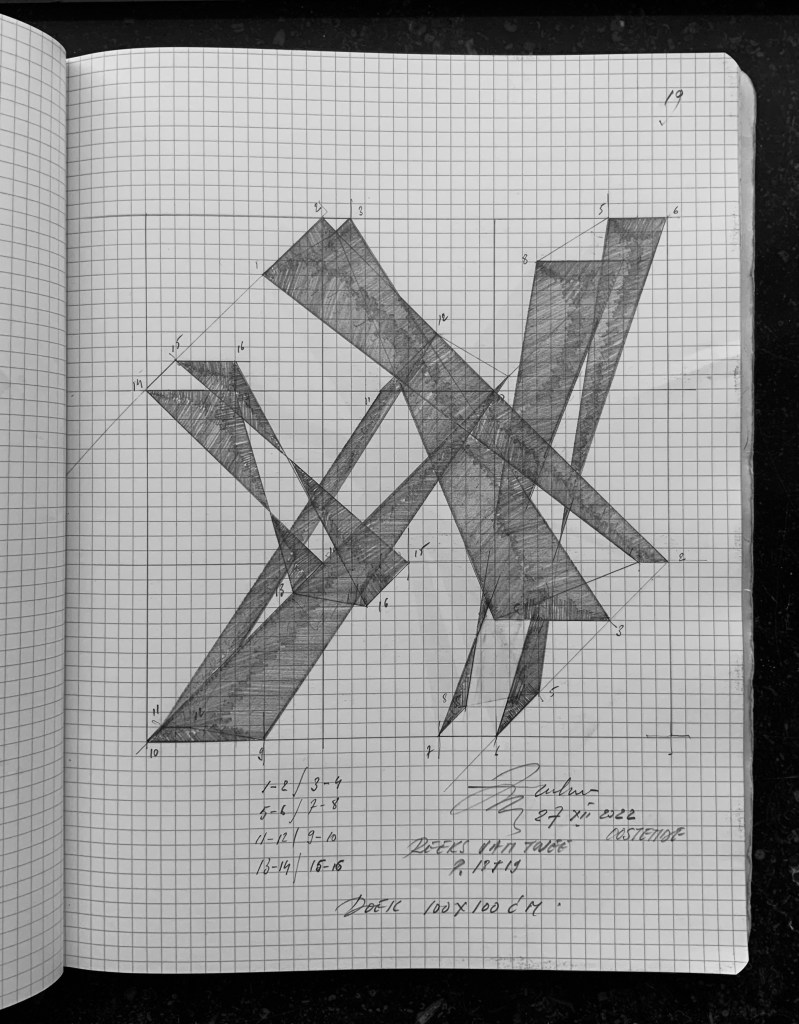 19
2 3 5 6
1 8
12
15 16
14 11
15 2
13 16
3
8 5
11 12 7 6
10 9
1-2 / 3-4
5-6 / 7-8
11-12 / 9-10
13-14 / 15-16
27 XII 2022
OOSTENDE
REEKS VAN TWEE
P. 18+19
DOEK 100 X 100 CM.